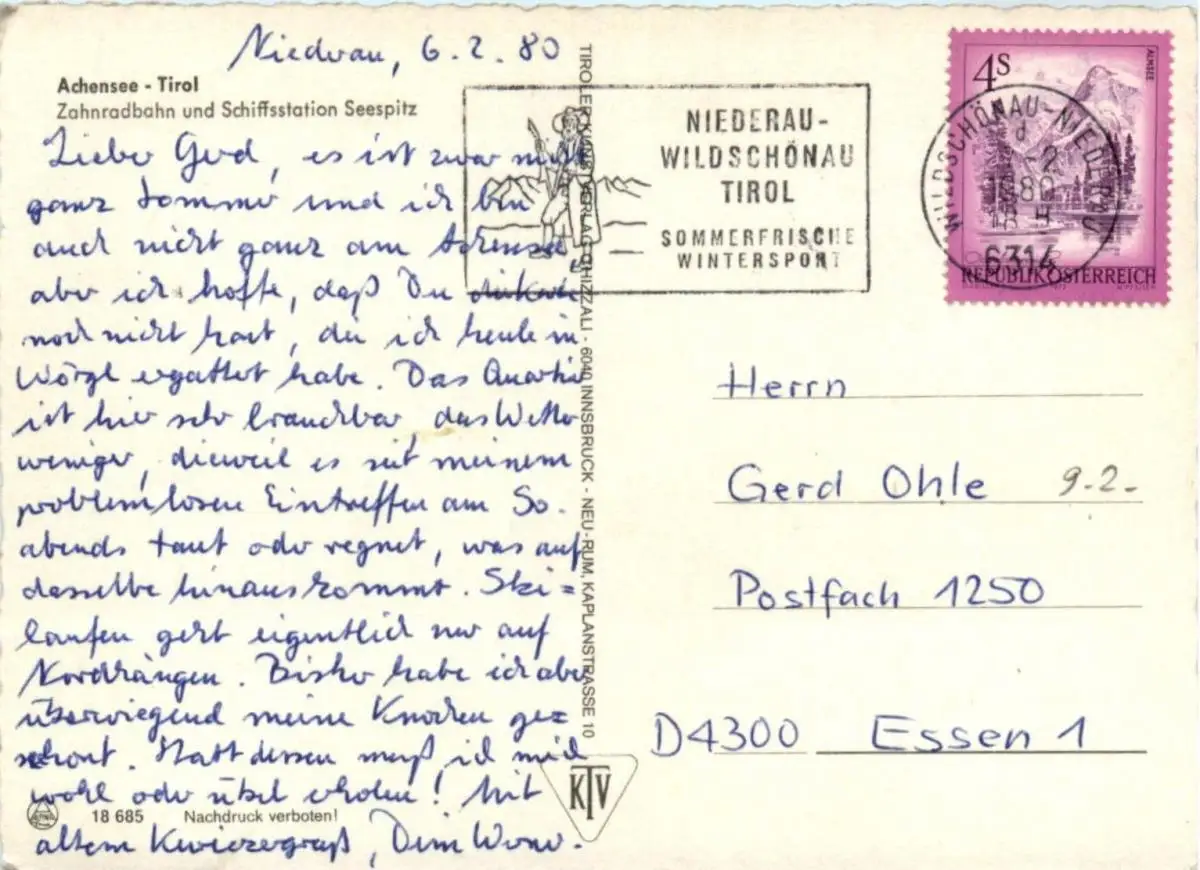 Niederau, 6.2.80
Achensee - Tirol
Zahnradbahn und Schiffsstation Seespitz
Lieber Gerd, es ist zwar nicht
ganz Sommer und ich bin
auch nicht ganz am Achensee,
aber ich hoffe, daß Du die Karte
noch nicht hast, die ich heute in
Wörgl ergattert habe. Das Quartier
ist hier sehr brauchbar, das Wetter
weniger, dieweil es seit meinem
problemlosen Eintreffen am So.
abends taut oder regnet, was auf
dasselbe hinauskommt. Ski=
laufen geht eigentlich nur auf
Nordhängen. Bisher habe ich aber
überwiegend meine Knochen ge=
schont. Statt dessen muß ich mich
wohl oder übel erholen! Mit
altem Kwiezegruß, Dein Werner.
18 685 Nachdruck verboten!
TIROLER KUNSTVERLAG CHIZZALI - 6040 INNSBRUCK - NEU-RUM, KAPLANSTRASSE 10
KTV
NIEDERAU-
WILDSCHÖNAU
TIROL
SOMMERFRISCHE
WINTERSPORT
4S
ALMSEE
WILDSCHÖNAU-NIEDERAU
d
-2
1980
18 H
6314
REPUBLIK ÖSTERREICH
Herrn
Gerd Ohle 9.2.
Postfach 1250
D4300 Essen 1